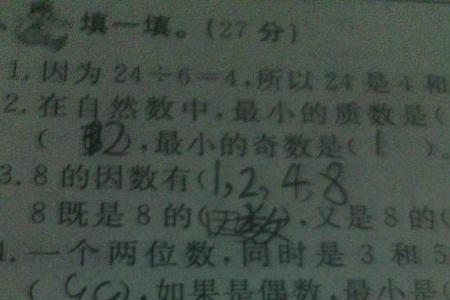 填一填。(27分)
1.因为24÷6=4,所以24是4和
2.在自然数中,最小的质数是(
( 2),最小的奇数是( 1 )。
3.8的因数有(1,2,4,8
8既是8的(因数),又是8的(
一个两位数,同时是3和5
( ),如果是偶数,最小是(